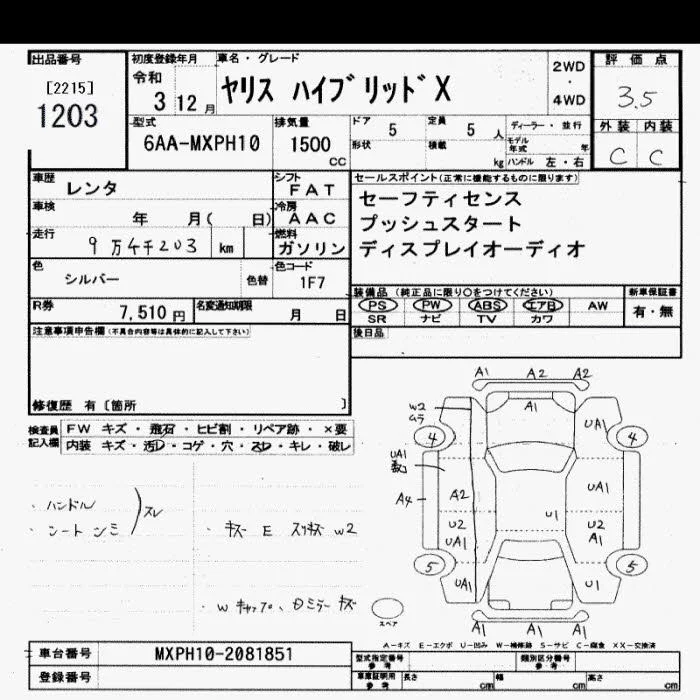 出品番号
[2215]
1203
初度登録年月
令和
3 12 月
車名・グレード
ヤリス ハイブリッド X
2WD
・
4WD
評価点
3.5
外装 内装
C C
型式
6AA-MXPH10
排気量
1500
CC
ドア 5
形状
定員 5 人
積載 kg
ディーラー・並行
モデル年式 年
ハンドル 左・右
車歴 レンタ
シフト FAT
車検 年 月( 日)
冷房 AAC
走行 9万4千203 km
燃料 ガソリン
セールスポイント(正常に機能するものに限ります)
セーフティセンス
プッシュスタート
ディスプレイオーディオ
色 シルバー 色替
色コード 1F7
R券 7,510 円
名変通知期限 月 日
装備品(純正品に限り○をつけてください)
PS PW ABS エアB AW
SR ナビ TV カワ
新車保証書
有・無
後日品
注意事項申告欄(不具合内容等は具体的に記入して下さい)
修復歴 有〔箇所 〕
検査員記入欄
FW キズ・飛石・ヒビ割・リペア跡・×要
内装 キズ・汚レ・コゲ・穴・スレ・キレ・破レ
・ハンドル
・シート シミ
スレ
・キズ E スリキズ W2
・W キャップ、
ミラー キズ
A1 A2 A2
A1
W2
ムラ
UA1
4 4
UA1
A4
A2
UA1
U1
U2
UA1
U2
A1
5 5
UA1
U1
A1 A1 A1
スペア
A-キズ E-エクボ U-凹み W-補修跡 S-サビ C-腐食 XX-交換済
車台番号 MXPH10-2081851
登録番号
型式指定番号
参考
類別区分番号
参考
車庫証明用
参考
長さ cm
幅 cm
高さ cm